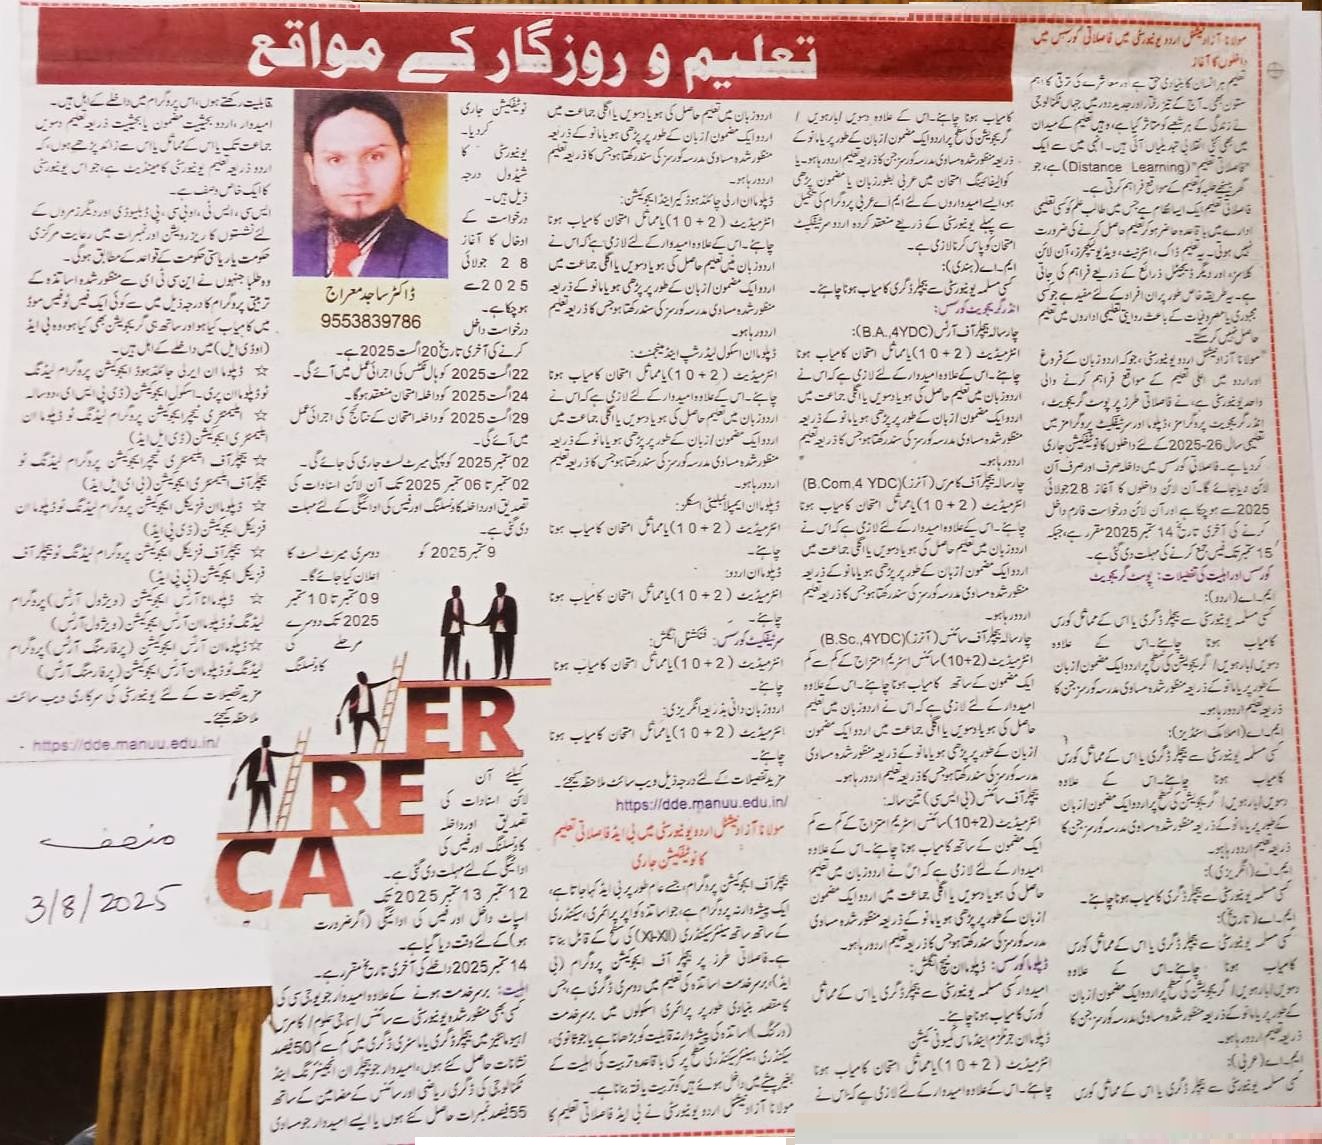 تعلیم و روزگار کے مواقع
مولانا آزاد نیشنل اردو یونیورسٹی میں فاصلاتی کورسس میں
داخلوں کا آغاز
تعلیم ہر انسان کا بنیادی حق ہے اور معاشرے کی ترقی کا اہم
ستون بھی۔ آج کے تیز رفتار اور جدید دور میں جہاں ٹکنالوجی
نے زندگی کے ہر شعبے کو متاثر کیا ہے، وہیں تعلیم کے میدان
میں بھی کئی انقلابی تبدیلیاں آئی ہیں۔ انہی میں سے ایک
"فاصلاتی تعلیم" (Distance Learning) ہے، جو
گھر بیٹھے طلبہ کو تعلیم کے مواقع فراہم کرتی ہے۔
فاصلاتی تعلیم ایک ایسا نظام ہے جس میں طالب علم کو کسی تعلیمی
ادارے میں باقاعدہ حاضر ہو کر تعلیم حاصل کرنے کی ضرورت
نہیں ہوتی۔ یہ تعلیم ڈاک، انٹرنیٹ، ویڈیو لیکچرز، آن لائن
کلاسز، اور دیگر ڈیجیٹل ذرائع کے ذریعے فراہم کی جاتی
ہے۔ یہ طریقہ خاص طور پر ان افراد کے لئے مفید ہے جو کسی
مجبوری یا مصروفیات کے باعث روایتی تعلیمی اداروں میں تعلیم
حاصل نہیں کر سکتے۔
مولانا آزاد نیشنل اردو یونیورسٹی، جو کہ اردو زبان کے فروغ
اور اردو میں اعلیٰ تعلیم کے مواقع فراہم کرنے والی
واحد یونیورسٹی ہے، نے فاصلاتی طرز پر پوسٹ گریجویٹ،
انڈر گریجویٹ پروگرامز، ڈپلوما اور سرٹیفکیٹ پروگرامز میں
تعلیمی سال 26-2025 کے لئے داخلوں کا نوٹیفکیشن جاری
کر دیا ہے۔ فاصلاتی کورسس میں داخلہ صرف اور صرف آن
لائن دیا جائے گا۔ آن لائن داخلوں کا آغاز 28 جولائی
2025 سے ہو چکا ہے اور آن لائن درخواست فارم داخل
کرنے کی آخری تاریخ 14 ستمبر 2025 مقرر ہے، جبکہ
15 ستمبر تک فیس جمع کرنے کی مہلت دی گئی ہے۔
کورسس اور اہلیت کی تفصیلات: پوسٹ گریجویٹ
ایم۔اے (اردو):
کسی مسلمہ یونیورسٹی سے بیچلر ڈگری یا اس کے مماثل کورس
کامیاب ہونا چاہئے۔ اس کے علاوہ
دسویں/بارہویں/گریجویشن کی سطح پر اردو ایک مضمون/زبان
کے طور پر یا مانو کے ذریعہ منظور شدہ مساوی مدرسہ کورسز جن کا
ذریعہ تعلیم اردو رہا ہو۔
ایم۔اے (اسلامک اسٹڈیز):
کسی مسلمہ یونیورسٹی سے بیچلر ڈگری یا اس کے مماثل کورس
کامیاب ہونا چاہئے۔ اس کے علاوہ
دسویں/بارہویں/گریجویشن کی سطح پر اردو ایک مضمون/زبان
کے طور پر یا مانو کے ذریعہ منظور شدہ مساوی مدرسہ کورسز جن کا
ذریعہ تعلیم اردو رہا ہو۔
ایم۔اے (انگریزی):
کسی مسلمہ یونیورسٹی سے بیچلر ڈگری کامیاب ہونا چاہئے۔
ایم۔اے (تاریخ):
کسی مسلمہ یونیورسٹی سے بیچلر ڈگری یا اس کے مماثل کورس
کامیاب ہونا چاہئے۔ اس کے علاوہ
دسویں/بارہویں/گریجویشن کی سطح پر اردو ایک مضمون/زبان
کے طور پر یا مانو کے ذریعہ منظور شدہ مساوی مدرسہ کورسز جن کا
ذریعہ تعلیم اردو رہا ہو۔
ایم۔اے (عربی):
کسی مسلمہ یونیورسٹی سے بیچلر ڈگری یا اس کے مماثل کورس
کامیاب ہونا چاہئے۔ اس کے علاوہ دسویں/بارہویں/
گریجویشن کی سطح پر اردو ایک مضمون/زبان کے طور پر یا مانو کے
منظور شدہ مساوی مدرسہ کورسز جن کا ذریعہ تعلیم اردو رہا ہو۔ یا
کوالیفائنگ امتحان میں عربی بطور زبان یا مضمون پڑھی
ہو، ایسے امیدواروں کے لئے ایم اے عربی پروگرام کی تکمیل
سے پہلے یونیورسٹی کے ذریعے منعقد کردہ اردو سرٹیفکیٹ
امتحان کو پاس کرنا لازمی ہے۔
ایم۔اے (ہندی):
کسی مسلمہ یونیورسٹی سے بیچلر ڈگری کامیاب ہونا چاہئے۔
انڈر گریجویٹ کورسس:
چار سالہ بیچلر آف آرٹس (B.A.,4YDC):
انٹرمیڈیٹ (2+10) یا مماثل امتحان کامیاب ہونا
چاہئے۔ اس کے علاوہ امیدوار کے لئے لازمی ہے کہ اس نے
اردو زبان میں تعلیم حاصل کی ہو یا دسویں یا اگلی جماعت میں
اردو ایک مضمون/زبان کے طور پر پڑھی ہو یا مانو کے ذریعہ
منظور شدہ مساوی مدرسہ کورسز کی سند رکھتا ہو جس کا ذریعہ تعلیم
اردو رہا ہو۔
چار سالہ بیچلر آف کامرس (آنرز) (B.Com,4 YDC)
انٹرمیڈیٹ (2+10) یا مماثل امتحان کامیاب ہونا
چاہئے۔ اس کے علاوہ امیدوار کے لئے لازمی ہے کہ اس نے
اردو زبان میں تعلیم حاصل کی ہو یا دسویں یا اگلی جماعت میں
اردو ایک مضمون/زبان کے طور پر پڑھی ہو یا مانو کے ذریعہ
منظور شدہ مساوی مدرسہ کورسز کی سند رکھتا ہو جس کا ذریعہ تعلیم
اردو رہا ہو۔
چار سالہ بیچلر آف سائنس (آنرز) (B.Sc.,4YDC)
انٹرمیڈیٹ (2+10) سائنس اسٹریم امتزاج کے کم سے کم
ایک مضمون کے ساتھ کامیاب ہونا چاہئے۔ اس کے علاوہ
امیدوار کے لئے لازمی ہے کہ اس نے اردو زبان میں تعلیم
حاصل کی ہو یا دسویں یا اگلی جماعت میں اردو ایک مضمون
/زبان کے طور پر پڑھی ہو یا مانو کے ذریعہ منظور شدہ مساوی
مدرسہ کورسز کی سند رکھتا ہو جس کا ذریعہ تعلیم اردو رہا ہو۔
بیچلر آف سائنس (بی ایس سی) تین سالہ:
انٹرمیڈیٹ (2+10) سائنس اسٹریم امتزاج کے کم سے کم
ایک مضمون کے ساتھ کامیاب ہونا چاہئے۔ اس کے علاوہ
امیدوار کے لئے لازمی ہے کہ اس نے اردو زبان میں تعلیم
حاصل کی ہو یا دسویں یا اگلی جماعت میں اردو ایک مضمون
/زبان کے طور پر پڑھی ہو یا مانو کے ذریعہ منظور شدہ مساوی
مدرسہ کورسز کی سند رکھتا ہو جس کا ذریعہ تعلیم اردو رہا ہو۔
ڈپلوما کورسس: ڈپلوما ان ٹیچ انگلش:
امیدوار کسی مسلمہ یونیورسٹی سے بیچلر ڈگری یا اس کے مماثل
کورس کا میاب ہونا چاہئے۔
ڈپلوما ان جرنلزم اینڈ ماس کمیونی کیشن
انٹرمیڈیٹ (2+10) یا مماثل امتحان کامیاب ہونا
چاہئے۔ اس کے علاوہ امیدوار کے لئے لازمی ہے کہ اس نے
اردو زبان میں تعلیم حاصل کی ہو یا دسویں یا اگلی جماعت میں
اردو ایک مضمون/زبان کے طور پر پڑھی ہو یا مانو کے ذریعہ
منظور شدہ مساوی مدرسہ کورسز کی سند رکھتا ہو جس کا ذریعہ تعلیم
اردو رہا ہو۔
ڈپلوما ان ارلی چائلڈ ہوڈ کیئر اینڈ ایجوکیشن:
انٹرمیڈیٹ (2+10) یا مماثل امتحان کامیاب ہونا
چاہئے۔ اس کے علاوہ امیدوار کے لئے لازمی ہے کہ اس نے
اردو زبان میں تعلیم حاصل کی ہو یا دسویں یا اگلی جماعت میں
اردو ایک مضمون/زبان کے طور پر پڑھی ہو یا مانو کے ذریعہ
منظور شدہ مساوی مدرسہ کورسز کی سند رکھتا ہو جس کا ذریعہ تعلیم
اردو رہا ہو۔
ڈپلوما ان اسکول لیڈرشپ اینڈ مینجمنٹ:
انٹرمیڈیٹ (2+10) یا مماثل امتحان کامیاب ہونا
چاہئے۔ اس کے علاوہ امیدوار کے لئے لازمی ہے کہ اس نے
اردو زبان میں تعلیم حاصل کی ہو یا دسویں یا اگلی جماعت میں
اردو ایک مضمون/زبان کے طور پر پڑھی ہو یا مانو کے ذریعہ
منظور شدہ مساوی مدرسہ کورسز کی سند رکھتا ہو جس کا ذریعہ تعلیم
اردو رہا ہو۔
ڈپلوما ان ایمپلائبلیٹی اسکلز:
انٹرمیڈیٹ (2+10) یا مماثل امتحان کامیاب ہونا
چاہئے۔
ڈپلوما ان اردو:
انٹرمیڈیٹ (2+10) یا مماثل امتحان کامیاب ہونا
چاہئے۔
سرٹیفکیٹ کورسس: فنکشنل انگلش:
انٹرمیڈیٹ (2+10) یا مماثل امتحان کامیاب ہونا
چاہئے۔
اردو زبان دانی بذریعہ انگریزی:
انٹرمیڈیٹ (2+10) یا مماثل امتحان کامیاب ہونا
چاہئے۔
مزید تفصیلات کے لئے درجہ ذیل ویب سائٹ ملاحظہ کیجئے۔
https://dde.manuu.edu.in/
مولانا آزاد نیشنل اردو یونیورسٹی میں بی ایڈ فاصلاتی تعلیم
کا نوٹیفکیشن جاری
بیچلر آف ایجوکیشن پروگرام، جسے عام طور پر بی ایڈ کہا جاتا ہے،
ایک پیشہ ورانہ پروگرام ہے، جو اساتذہ کو اپر پرائمری، سیکنڈری
کے ساتھ ساتھ سینئر سیکنڈری (XI-XII) کی سطح کے قابل بناتا
ہے۔ فاصلاتی طرز پر بیچلر آف ایجوکیشن پروگرام (بی
ایڈ)، برسر خدمت اساتذہ کی تعلیم میں دوسری ڈگری ہے، جس
کا مقصد بنیادی طور پر پرائمری اسکولوں میں برسر خدمت
(ورکنگ) اساتذہ کی پیشہ ورانہ قابلیت کو بڑھانا ہے یا جو ثانوی،
سیکنڈری/سینئر سیکنڈری سطح پر کسی باقاعدہ تربیت کی اہلیت کے
بغیر پیشے میں داخل ہوئے ہیں کو تربیت یافتہ بنانا ہے۔
مولانا آزاد نیشنل اردو یونیورسٹی نے بی ایڈ فاصلاتی تعلیم کا
نوٹیفکیشن جاری
کر دیا۔
یونیورسٹی کا
شیڈول درجہ
ذیل ہیں۔
درخواست کے
ادخال کا آغاز
28 جولائی
2025 سے
ہو چکا ہے۔
ڈاکٹر ساجد معراج
9553839786
درخواست داخل
کرنے کی آخری تاریخ 20 اگست 2025 ہے۔
22 اگست 2025 کو ہال ٹکٹس کی اجرائی عمل میں آئے گی۔
24 اگست 2025 کو داخلہ امتحان منعقد ہوگا۔
29 اگست 2025 کو داخلہ امتحان کے نتائج کی اجرائی عمل
میں آئے گی۔
02 ستمبر 2025 کو پہلی میرٹ لسٹ جاری کی جائے گی۔
02 ستمبر تا 06 ستمبر 2025 تک آن لائن اسنادات کی
تصدیق اور داخلہ کاؤنسلنگ اور فیس کی ادائیگی کے لئے مہلت
دی گئی ہے۔
9 ستمبر 2025 کو دوسری میرٹ لسٹ کا
اعلان کیا جائے گا۔
09 ستمبر تا 10 ستمبر
2025 تک دوسرے
مرحلے کی
کاؤنسلنگ
CAREER
کیلئے آن
لائن اسنادات کی
تصدیق اور داخلہ
کاؤنسلنگ اور فیس کی
ادائیگی کے لئے مہلت دی گئی ہے۔
12 ستمبر تا 13 ستمبر 2025 تک
اسپاٹ داخل اور فیس کی ادائیگی (اگر ضرورت
ہو) کے لئے وقت دیا گیا ہے۔
14 ستمبر 2025 داخلے کی آخری تاریخ مقرر ہے۔
اہلیت: برسر خدمت ہونے کے علاوہ امیدوار جو یو جی سی کی
کسی بھی منظور شدہ یونیورسٹی سے سائنس/سماجی علوم/کامرس
/ہیومانٹیز میں بیچلرز ڈگری یا ماسٹری ڈگری میں کم سے کم 50 فیصد
نشانات حاصل کئے ہوں، امیدوار جو بیچلر ان انجینئرنگ اینڈ
ٹکنالوجی کی ڈگری ریاضی اور سائنس کے مضامین کے ساتھ
55 فیصد نمبرات حاصل کئے ہوں یا ایسے امیدوار جو مساوی
قابلیت رکھتے ہوں، اس پروگرام میں داخلے کے اہل ہیں۔
امیدوار، اردو بحیثیت مضمون یا بحیثیت ذریعہ تعلیم دسویں
جماعت تک یا اس کے مماثل یا اس سے زائد پڑھے ہوں، کہ
اردو ذریعہ تعلیم یونیورسٹی کا مینڈیٹ ہے، جو اس یونیورسٹی
کا ایک خاص وصف ہے۔
ایس سی، ایس ٹی، او بی سی، پی ڈبلیو ڈی اور دیگر زمروں کے
لئے نشستوں کا ریزرویشن اور نمبرات میں رعایت مرکزی
حکومت یا ریاستی حکومت کے قواعد کے مطابق ہوگی۔
وہ طلبا جنہوں نے این سی ٹی ای سے منظور شدہ اساتذہ کے
تربیتی پروگرام کا درجہ ذیل میں سے کوئی ایک فیس ٹو فیس موڈ
میں کامیاب کیا ہو اور ساتھ ہی گریجویشن بھی کیا ہو، وہ بی ایڈ
(او ڈی ایل) میں داخلے کے اہل ہیں۔
☆ ڈپلوما ان ایرلی چائلڈ ہوڈ ایجوکیشن پروگرام لیڈنگ
ٹو ڈپلوما ان پری۔اسکول ایجوکیشن (ڈی پی ایس ای)، دو سالہ
☆ ایلیمنٹری ٹیچر ایجوکیشن پروگرام لیڈنگ ٹو ڈپلوما ان
ایلیمنٹری ایجوکیشن (ڈی ایل ایڈ)
☆ بیچلر آف ایلیمنٹری ٹیچر ایجوکیشن پروگرام لیڈنگ ٹو
بیچلر آف ایلیمنٹری ایجوکیشن (بی ای ایل ایڈ)
☆ ڈپلوما ان فزیکل ایجوکیشن پروگرام لیڈنگ ٹو ڈپلوما ان
فزیکل ایجوکیشن (ڈی پی ایڈ)
☆ بیچلر آف فزیکل ایجوکیشن پروگرام لیڈنگ ٹو بیچلر آف
فزیکل ایجوکیشن (بی پی ایڈ)
☆ ڈپلوما ان آرٹس ایجوکیشن (ویژول آرٹس) پروگرام
لیڈنگ ٹو ڈپلوما ان آرٹس ایجوکیشن (ویژول آرٹس)
☆ ڈپلوما ان آرٹس ایجوکیشن (پرفارمنگ آرٹس) پروگرام
لیڈنگ ٹو ڈپلوما ان آرٹس ایجوکیشن (پرفارمنگ آرٹس)
مزید تفصیلات کے لئے یونیورسٹی کی سرکاری ویب سائٹ
ملاحظہ کیجئے۔
https://dde.manuu.edu.in/
منصف
3/8/2025